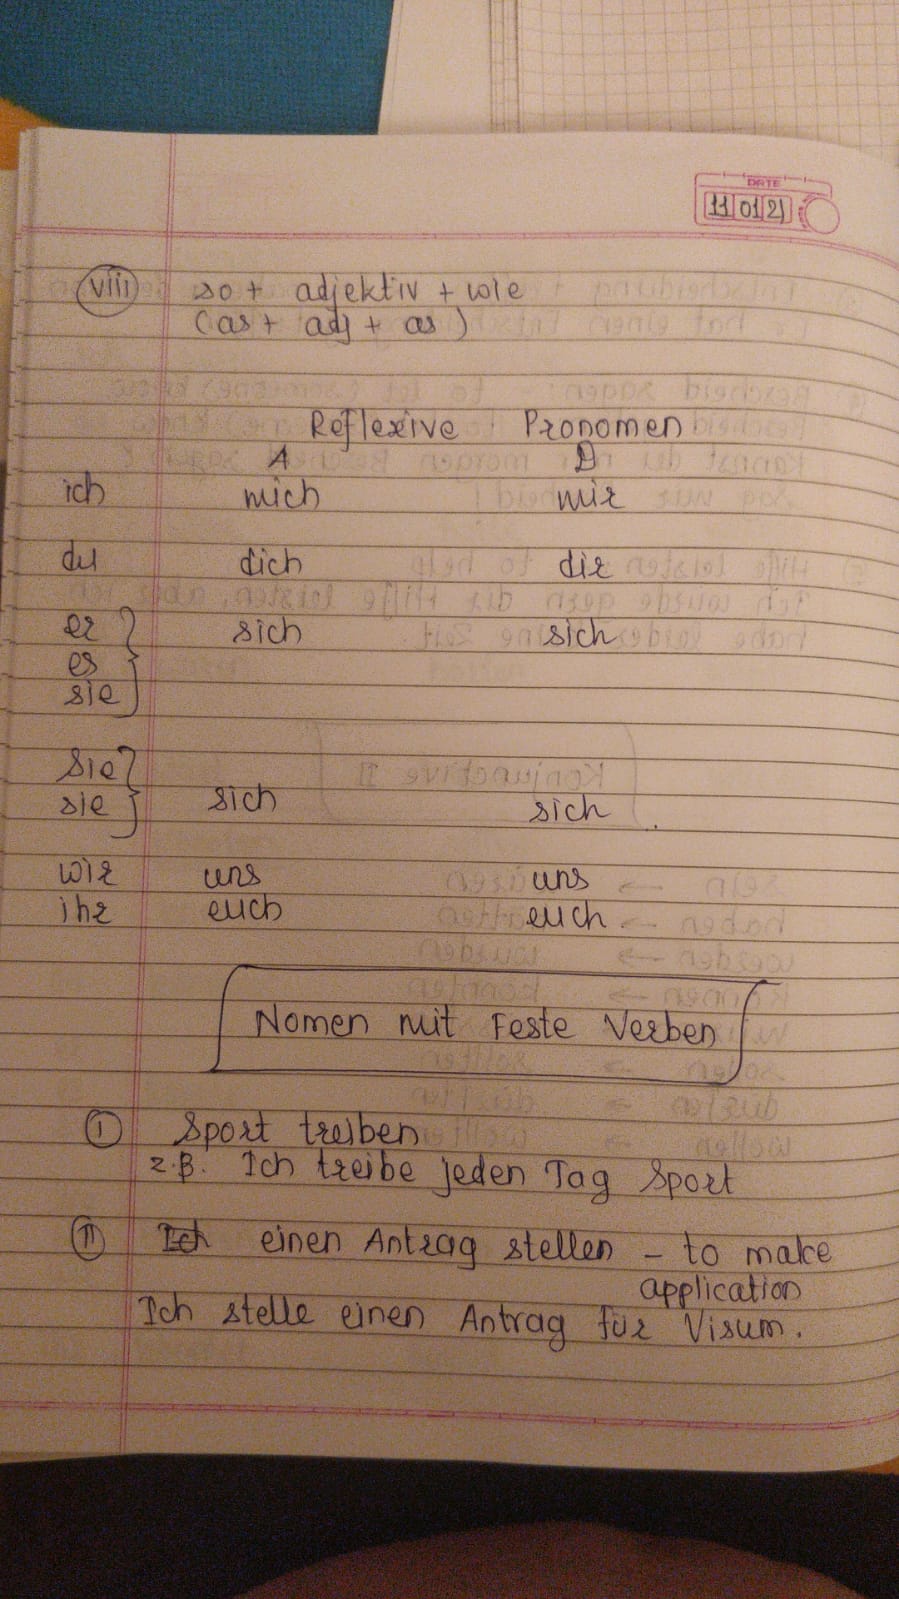 DATE
11 01 21
viii so + adjektiv + wie
(as + adj + as)
Reflexive Pronomen
A D
ich mich mir
du dich dir
er sich sich
es
sie
Sie
sie sich sich
wir uns uns
ihr euch euch
Nomen mit Feste Verben
I Sport treiben
z.B. Ich treibe jeden Tag Sport
II Ich einen Antrag stellen – to make
application
Ich stelle einen Antrag für Visum.